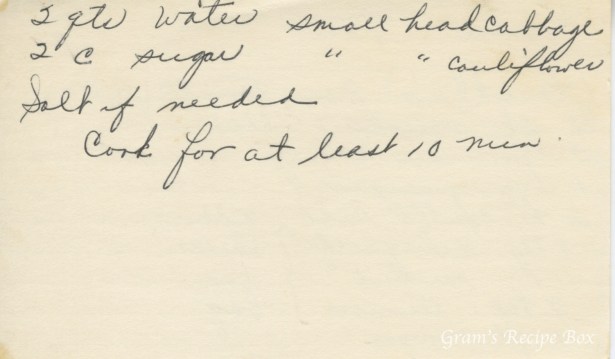 2 qts water small head cabbage
2 c sugar " " cauliflower
Salt if needed
Cook for at least 10 min.
Gram's Recipe Box